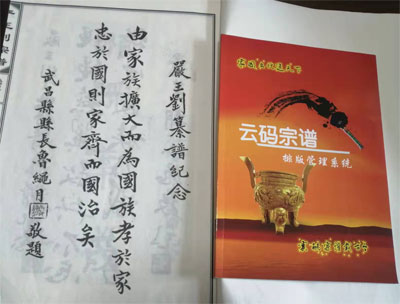 嚴王劉纂譜紀念
由家族擴大而為國族孝於家
忠於國則家齊而國治矣
武昌縣縣長魯繩月敬題
云码宗谱
排版管理系统